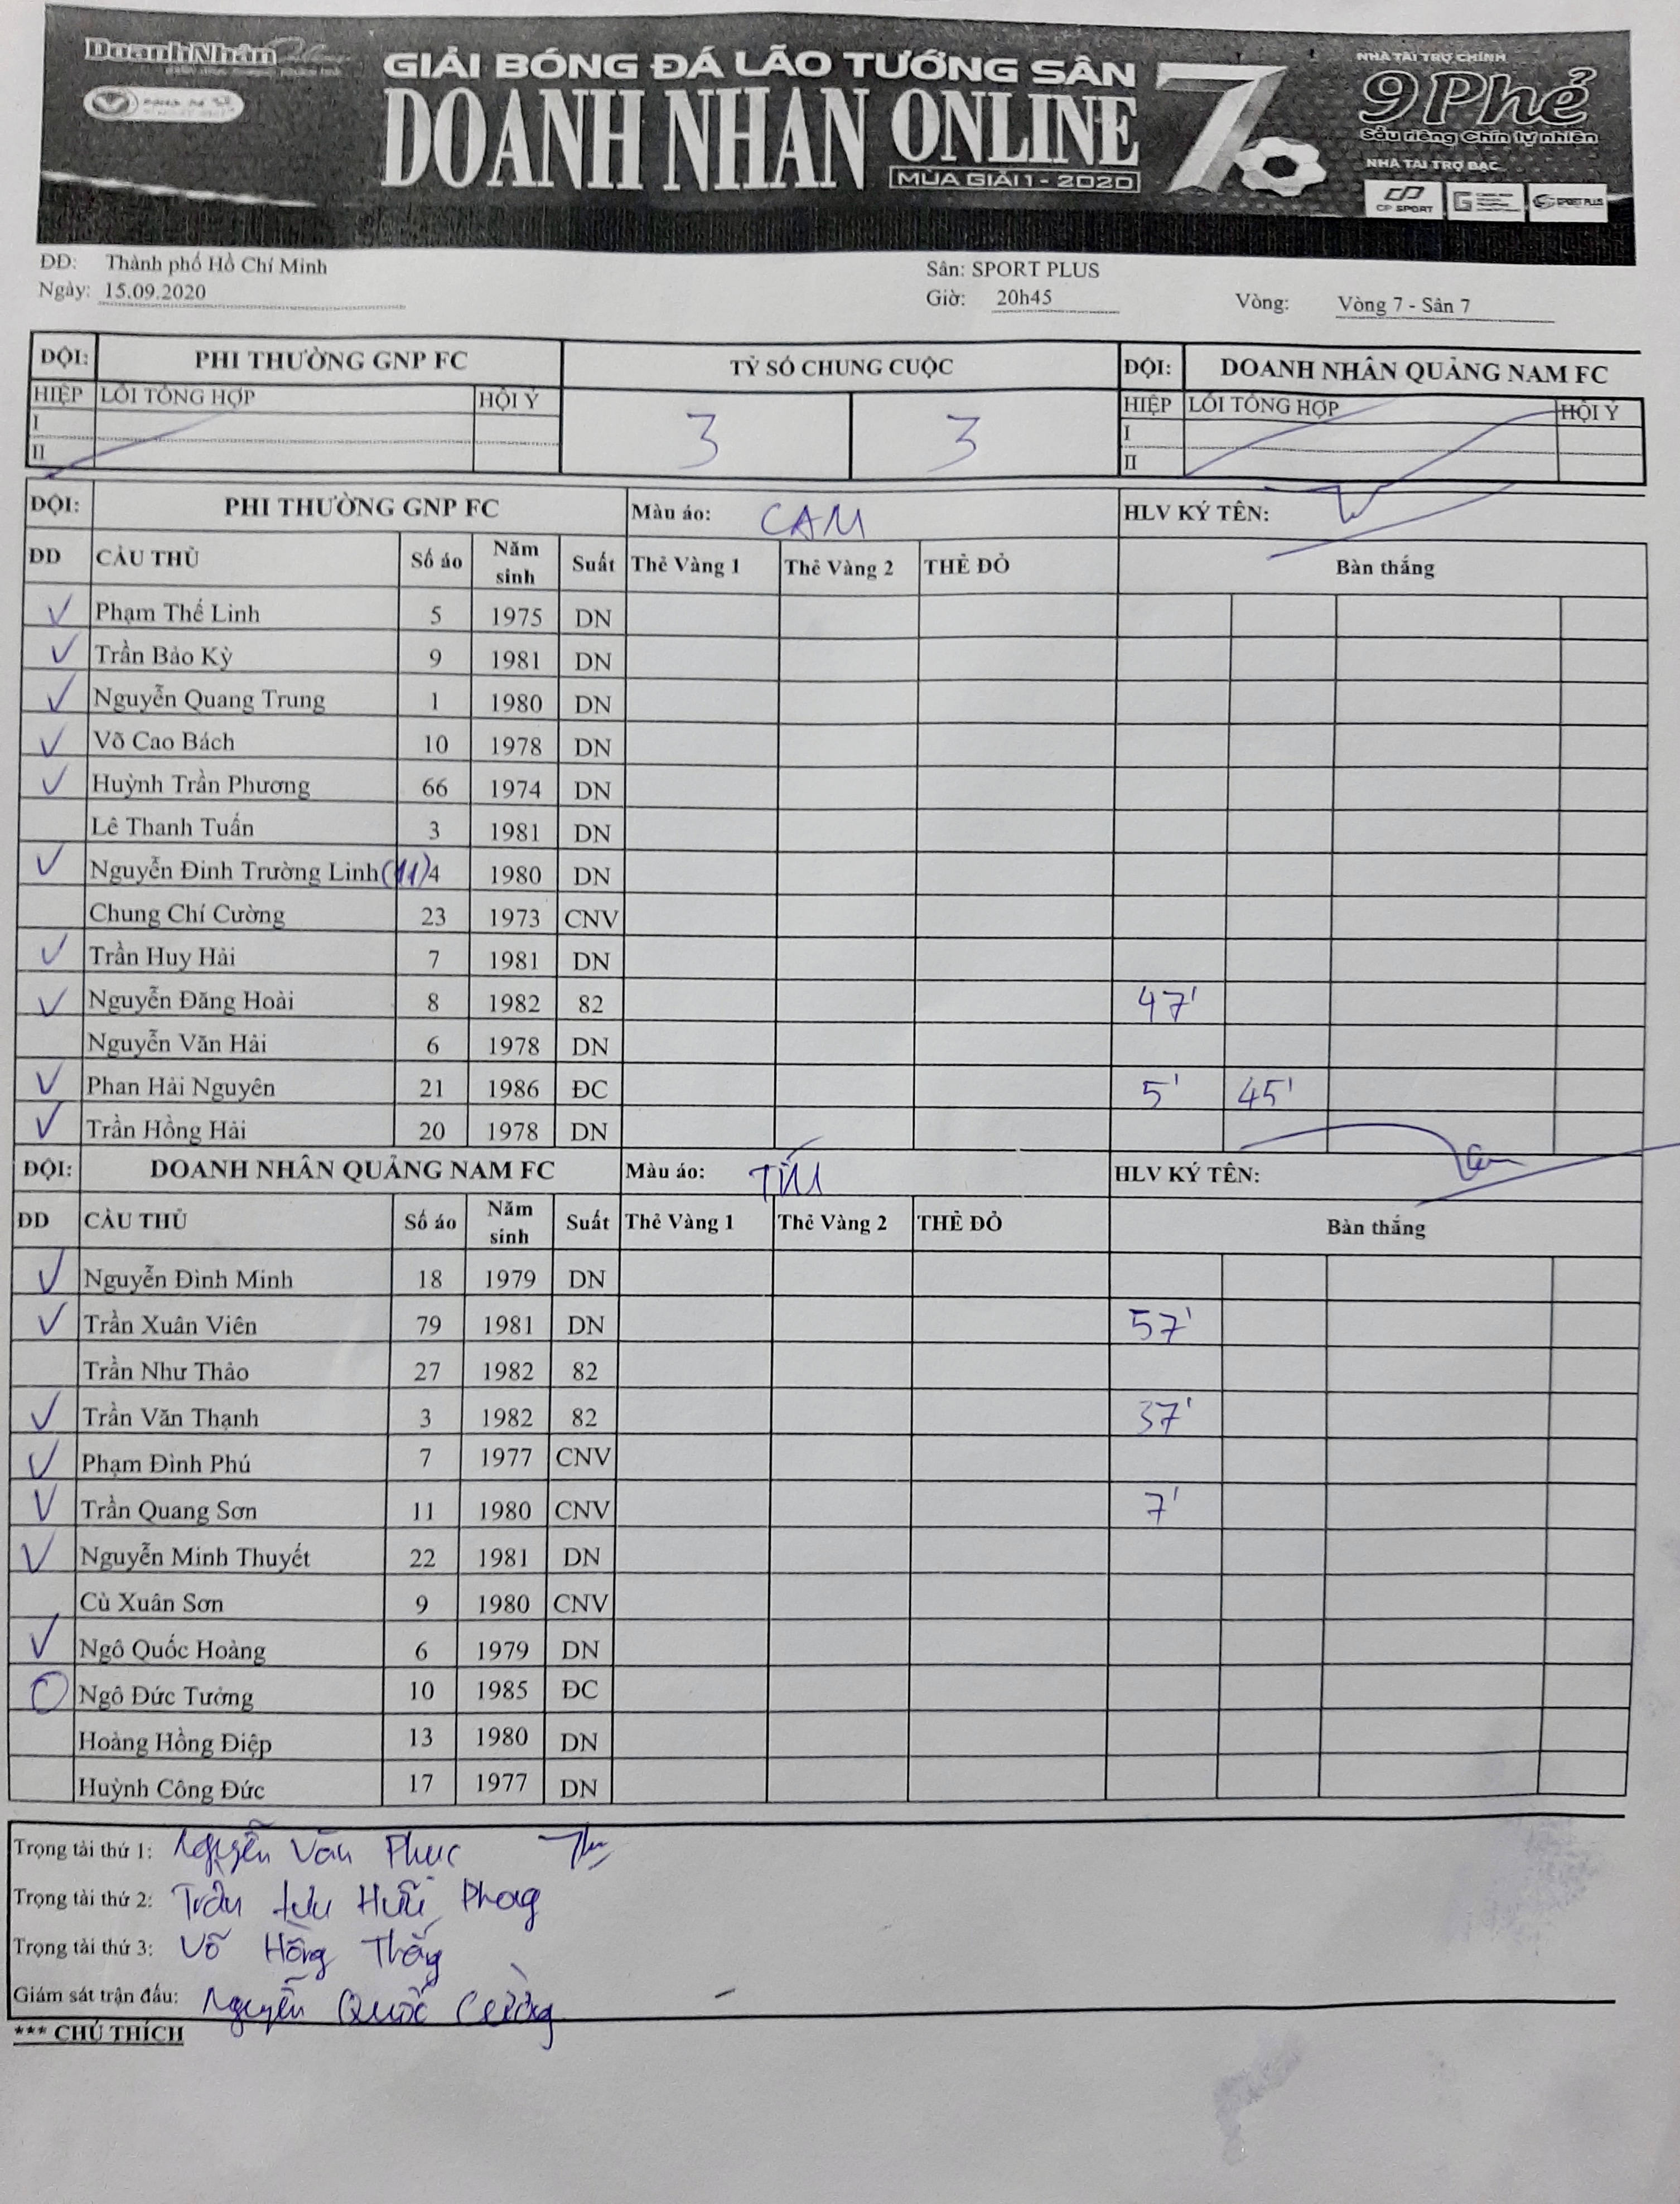 DoanhNhân Online
GIẢI BÓNG ĐÁ LÃO TƯỚNG SÂN 7
DOANH NHAN ONLINE
MÙA GIẢI 1 - 2020
NHÀ TÀI TRỢ CHÍNH
9 Phẻ
Sầu riêng Chín tự nhiên
NHÀ TÀI TRỢ BẠC
CP SPORT SPORT PLUS
DD: Thành phố Hồ Chí Minh Sân: SPORT PLUS
Ngày: 15.09.2020 Giờ: 20h45 Vòng: Vòng 7 - Sân 7
ĐỘI: PHI THƯỜNG GNP FC TỶ SỐ CHUNG CUỘC ĐỘI: DOANH NHÂN QUẢNG NAM FC
HIỆP LỖI TỔNG HỢP HỘI Ý 3 3 HIỆP LỖI TỔNG HỢP HỘI Ý
I I
II II
ĐỘI: PHI THƯỜNG GNP FC Màu áo: CAM HLV KÝ TÊN:
DD CẦU THỦ Số áo Năm sinh Suất Thẻ Vàng 1 Thẻ Vàng 2 THẺ ĐỎ Bàn thắng
✓ Phạm Thế Linh 5 1975 DN
✓ Trần Bảo Kỳ 9 1981 DN
✓ Nguyễn Quang Trung 1 1980 DN
✓ Võ Cao Bách 10 1978 DN
✓ Huỳnh Trần Phương 66 1974 DN
Lê Thanh Tuấn 3 1981 DN
✓ Nguyễn Đinh Trường Linh (11) 4 1980 DN
Chung Chí Cường 23 1973 CNV
✓ Trần Huy Hải 7 1981 DN
✓ Nguyễn Đăng Hoài 8 1982 82 47'
Nguyễn Văn Hải 6 1978 DN
✓ Phan Hải Nguyên 21 1986 ĐC 5' 45'
✓ Trần Hồng Hải 20 1978 DN
ĐỘI: DOANH NHÂN QUẢNG NAM FC Màu áo: TÍM HLV KÝ TÊN:
DD CẦU THỦ Số áo Năm sinh Suất Thẻ Vàng 1 Thẻ Vàng 2 THẺ ĐỎ Bàn thắng
✓ Nguyễn Đình Minh 18 1979 DN
✓ Trần Xuân Viên 79 1981 DN 57'
Trần Như Thảo 27 1982 82
✓ Trần Văn Thạnh 3 1982 82 37'
✓ Phạm Đình Phú 7 1977 CNV
✓ Trần Quang Sơn 11 1980 CNV 7'
✓ Nguyễn Minh Thuyết 22 1981 DN
Cù Xuân Sơn 9 1980 CNV
✓ Ngô Quốc Hoàng 6 1979 DN
O Ngô Đức Tưởng 10 1985 ĐC
Hoàng Hồng Điệp 13 1980 DN
Huỳnh Công Đức 17 1977 DN
Trọng tài thứ 1: Nguyễn Văn Phúc
Trọng tài thứ 2: Trần Lưu Hữu Phong
Trọng tài thứ 3: Võ Hồng Thắng
Giám sát trận đấu: Nguyễn Quốc Cường
*** CHÚ THÍCH